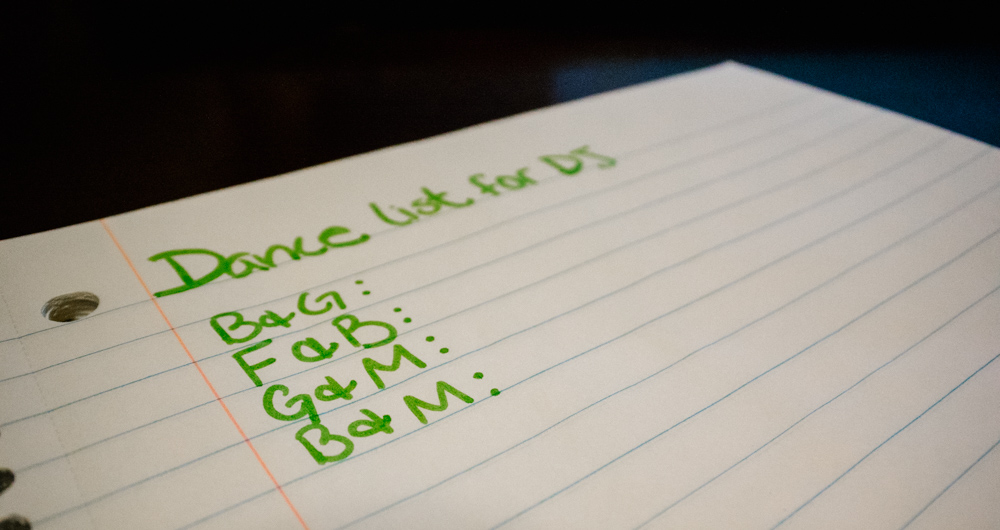 Dance list for DJ
B&G:
F&B:
G&M:
B&M: